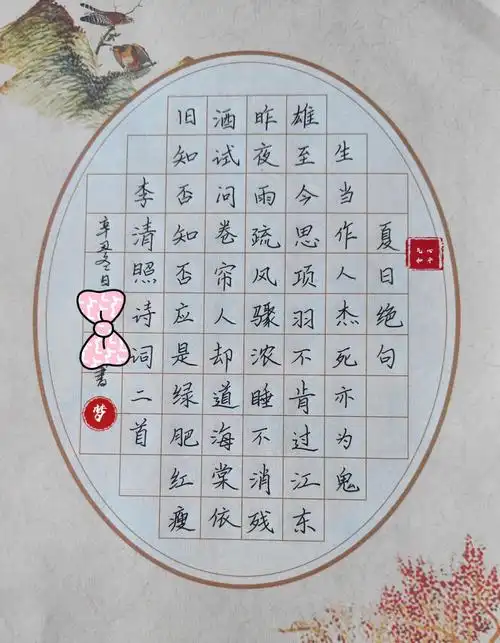 夏日绝句
生当作人杰死亦为鬼
雄至今思项羽不肯过江东
昨夜雨疏风骤浓睡不消残
酒试问卷帘人却道海棠依
旧知否知否应是绿肥红瘦
李清照诗词二首
辛丑冬日
书
梦